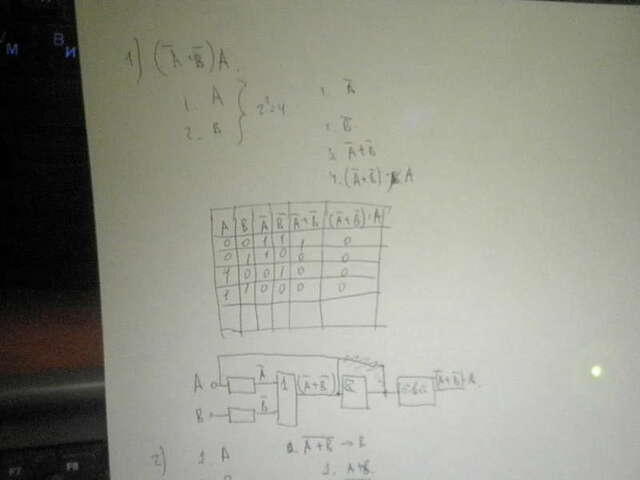 1) (A̅ + B̅) A.
1. A
2. B
} 2²=4
1. A̅
2. B̅
3. A̅+B̅
4. (A̅+B̅) · A
A B A̅ B̅ A̅+B̅ (A̅+B̅)·A
0 0 1 1 1 0
0 1 1 0 0 0
1 0 0 1 0 0
1 1 0 0 0 0
A A̅ 1 (A̅+B̅) & (A̅+B̅)·A
B B̅
2) 1. A 2. A̅+̅B̅ → B
1. A+B
F7 F8